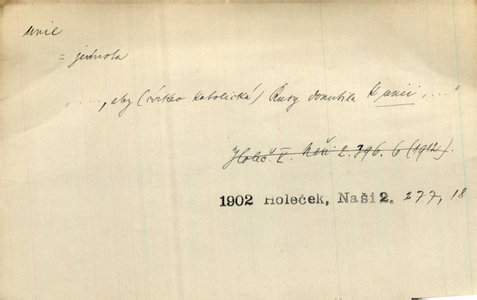 unie
= jednota
...., aby (církev katolická) Rusy donutila k unii, ...."
Holeč. J. Naši 2. 396. 6 (1912).
1902 Holeček, Naši 2. 277, 18